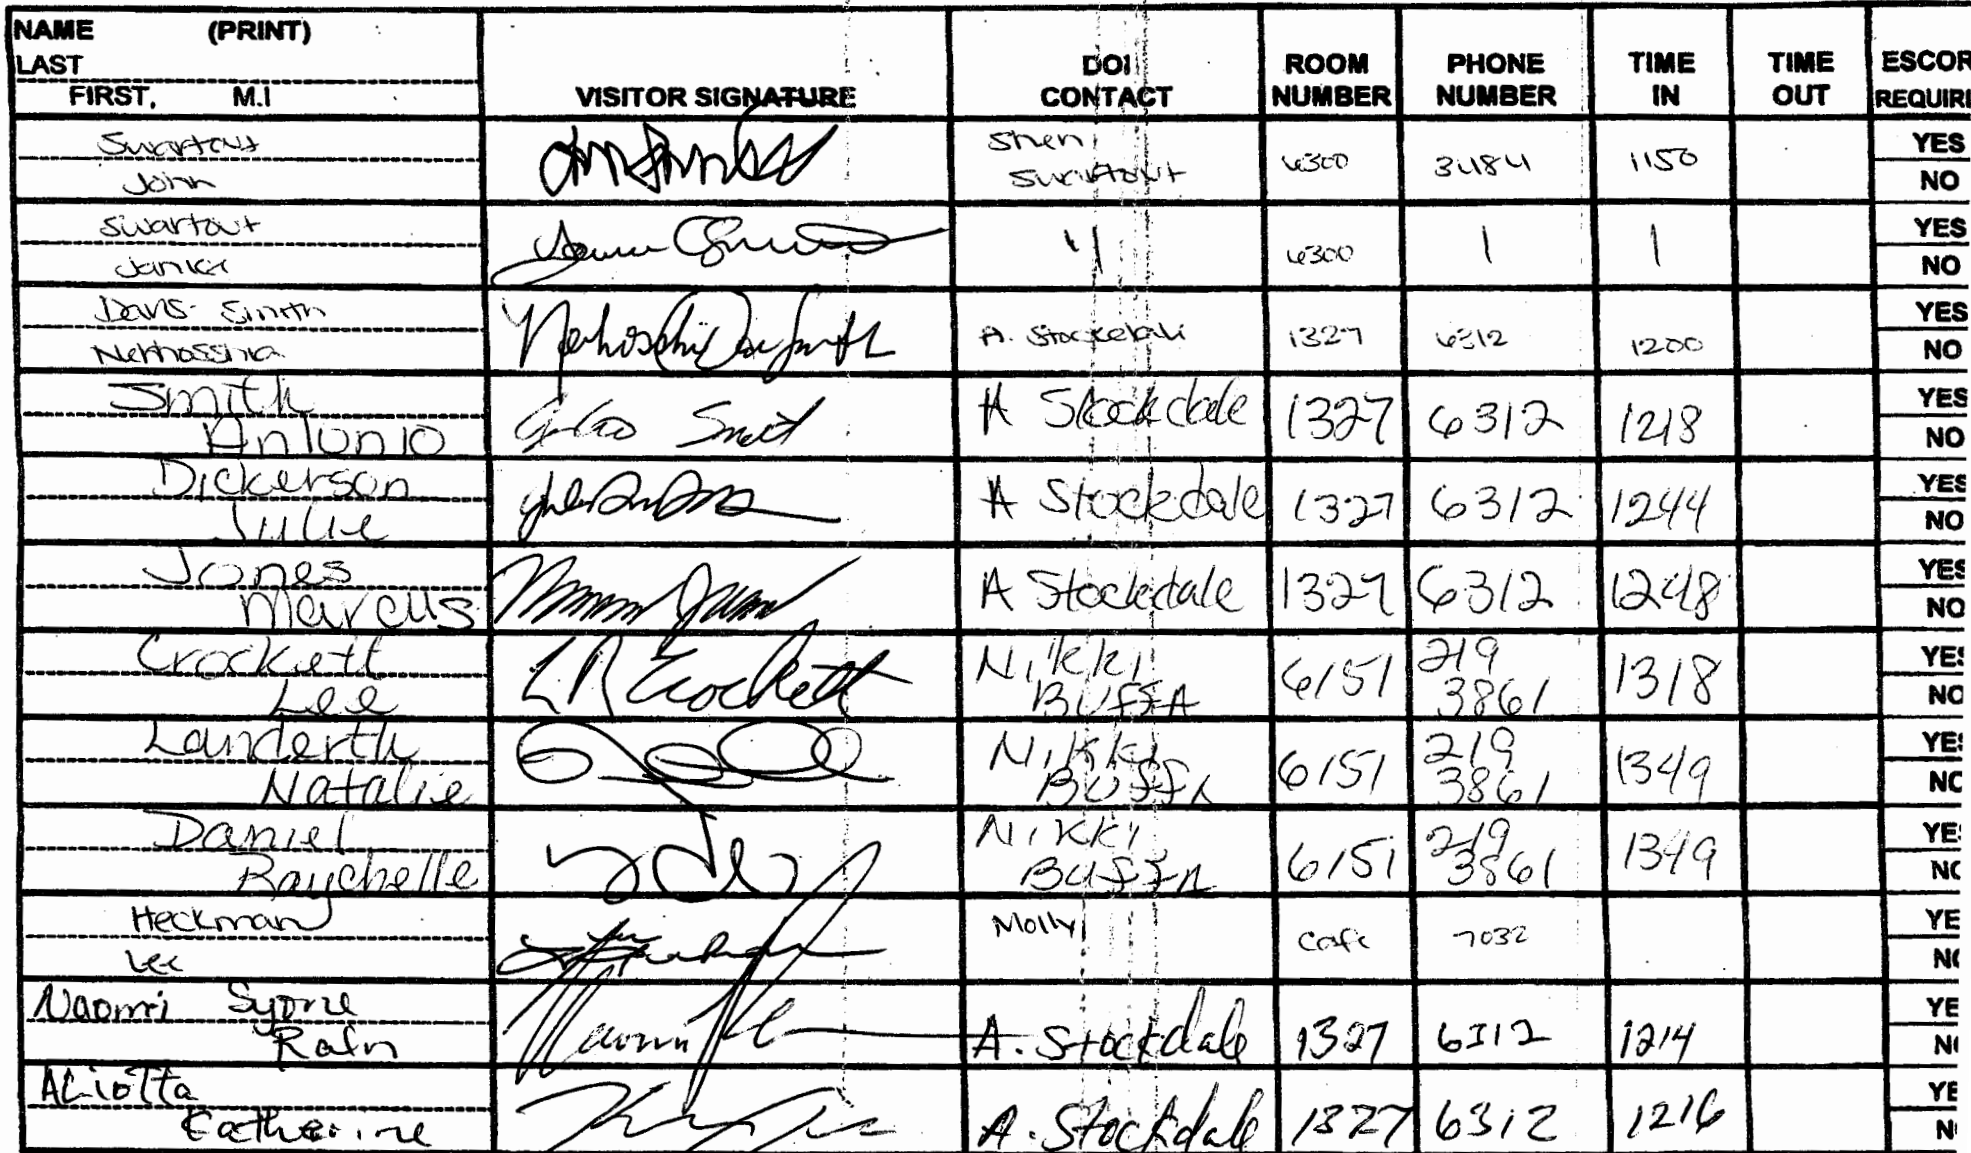 NAME (PRINT)
LAST
FIRST, M.I
VISITOR SIGNATURE
DOI CONTACT
ROOM NUMBER
PHONE NUMBER
TIME IN
TIME OUT
ESCOR
REQUIRE
Swartout
John
Sheri
Swartout
6300
3484
1150
YES
NO
Swartout
Janice
"
6300
|
|
YES
NO
Davis-Smith
A. Stockdale
1327
6312
1200
YES
NO
Smith
Antonio
A Stockdale
1327
6312
1218
YES
NO
Dickerson
Julie
A Stockdale
1327
6312
1244
YES
NO
Jones
Marcus
A Stockdale
1327
6312
1248
YES
NO
Crockett
Lee
LR Crockett
Nikki
Buffa
6151
219
3861
1318
YES
NO
Landerth
Natalie
Nikki
Buffa
6151
219
3861
1349
YES
NO
Daniel
Raychelle
Nikki
Buffa
6151
219
3861
1349
YE
NO
Heckman
Lee
Molly
Cafe
7032
YE
NO
Naomi
A. Stockdale
1327
6312
1214
YE
N
Aliotta
Catherine
A. Stockdale
1327
6312
1216
YE
N